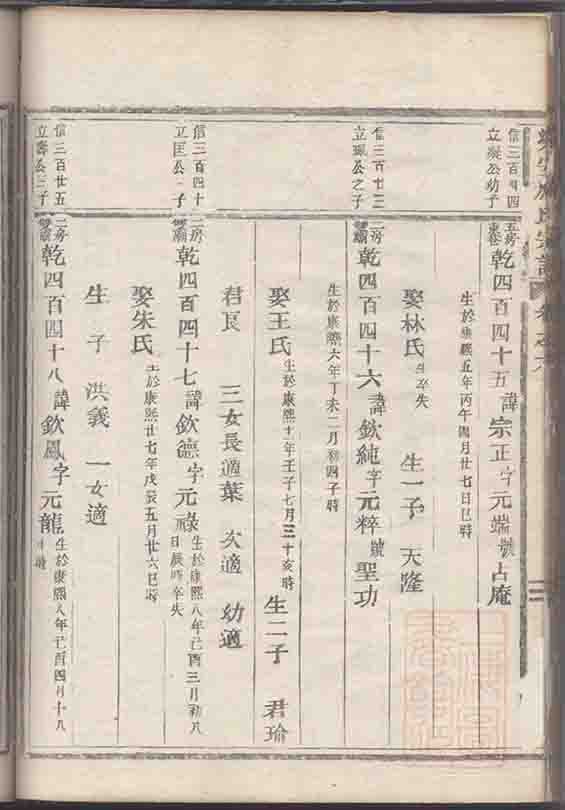 信三百四四
立凝公幼子
五房
東巷
乾四百四十五諱宗正字元端號占庵
生於康熙五年丙午四月廿七日巳時
娶林氏生卒失 生一子 天隆
信三百廿三
立珮公之子
二房
雙廟
乾四百四十六諱欽純字元粹號聖功
生於康熙六年丁未二月初四子時
娶王氏生於康熙十一年壬子七月三十亥時 生二子 君瑜
君良 三女長適葉 次適 幼適
信三百四十
立匡公 子
二房
雙廟
乾四百四十七諱欽德字元祿生於康熙八年己酉三月初八
日辰時卒失
娶朱氏生於康熙廿七年戊辰五月廿六巳時
生子洪義 一女適
信三百廿五
立壽公三子
二房
雙廟
乾四百四十八諱欽鳳字元龍生於康熙八年己酉四月十八
時